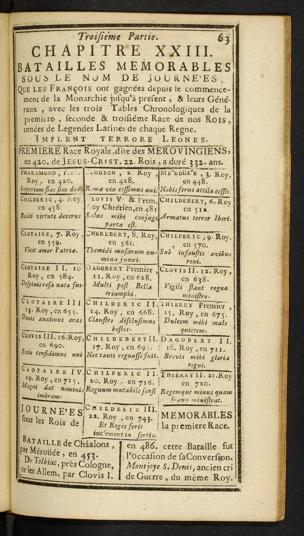 Troisiéme Partie. 63
CHAPITRE XXIII.
BATAILLES MEMORABLES
SOUS LE NOM DE JOURNE'ES,
QUE LES FRANÇOIS ont gagnées depuis le commence-
ment de la Monarchie jusqu'à present, & leurs Géné-
raux, avec les trois Tables Chronologiques de la
premiere, seconde & troisiéme Race de nos Rois,
ornées de Legendes Latines de chaque Regne.
IMPLENT TERRORE LEONES.
PREMIERE Race Royale, dite des MEROVINGIENS,
en 420. de JESUS-CRIST. 22 Rois, a duré 332. ans.
PHARAMOND,
Roy, en 420.
CLODION, 2. Roy,
en 428.
Roma vix cessimus uni.
ME'ROÜE'E, 3. Roy,
en 448.
Nobis ferus attila cessit.
CHILDERIC, 4. Roy
en 458
Rediit virtute decorus
LOUIS V & Prem.
oy Chrétien, en 481
Salus mihi conjuge
parta est.
CHILDEBERT, 6. Roy
en 512.
Armatus terror Iberi.
CLOTAIRE, 7. Roy,
en 559.
Vicit amor Patriæ.
CHEREBERT, 8. Roy,
en 561.
Themidi musarum nu-
mina junxi.
CHILPERIC, 9. Roy
en 570.
Sub infaustis avibus
rexi.
CLOTAIRE II. 10
Roy, en 584.
DAGOBERT Premier,
11. Roy, en 628,
Multi post Bella
triumphi.
CLOVIS II. 12. Roy,
en 638.
Vigili stant regna
ministro.
CLOTAIRE III
13. Roy, en 655.
CHILDERIC II.
14. Roy, en 668.
Claustro disclusimus
hostes.
THIERRY Premier,
15. Roy, en 675.
Dulcem mihi mals
quietem.
CLOVIS III. 16. Roy,
en 690.
CHILDEBERT II.
17. Roy, en 695.
Nec tantis regnasse fuit.
DAGOBERT II.
18. Roy, en 711.
Brevis mihi gloria
regni.
CLOTAIRE IV.
19. Roy, en 715,
CHILPERIC II.
20. Roy, en 716.
Regnum mutabile sensi
THIERRY II. 21. Roy
en 720.
Regemque minus quam
franc ministrat.
JOURNE'ES
sous les Rois de
CHILDERIC III.
22. Roy, en 743.
Et Reges feris
MEMORABLES
la premiere Race.
BATAILLE de Châalons,
par Méroüée, en 453.
De Tolbiac, près Cologne,
sur les Allem. par Clovis I.
en 486. cette Bataille fut
l'occasion de sa Conversion.
Montjoye S. Denis, ancien cri
de Guerre, du même Roy.